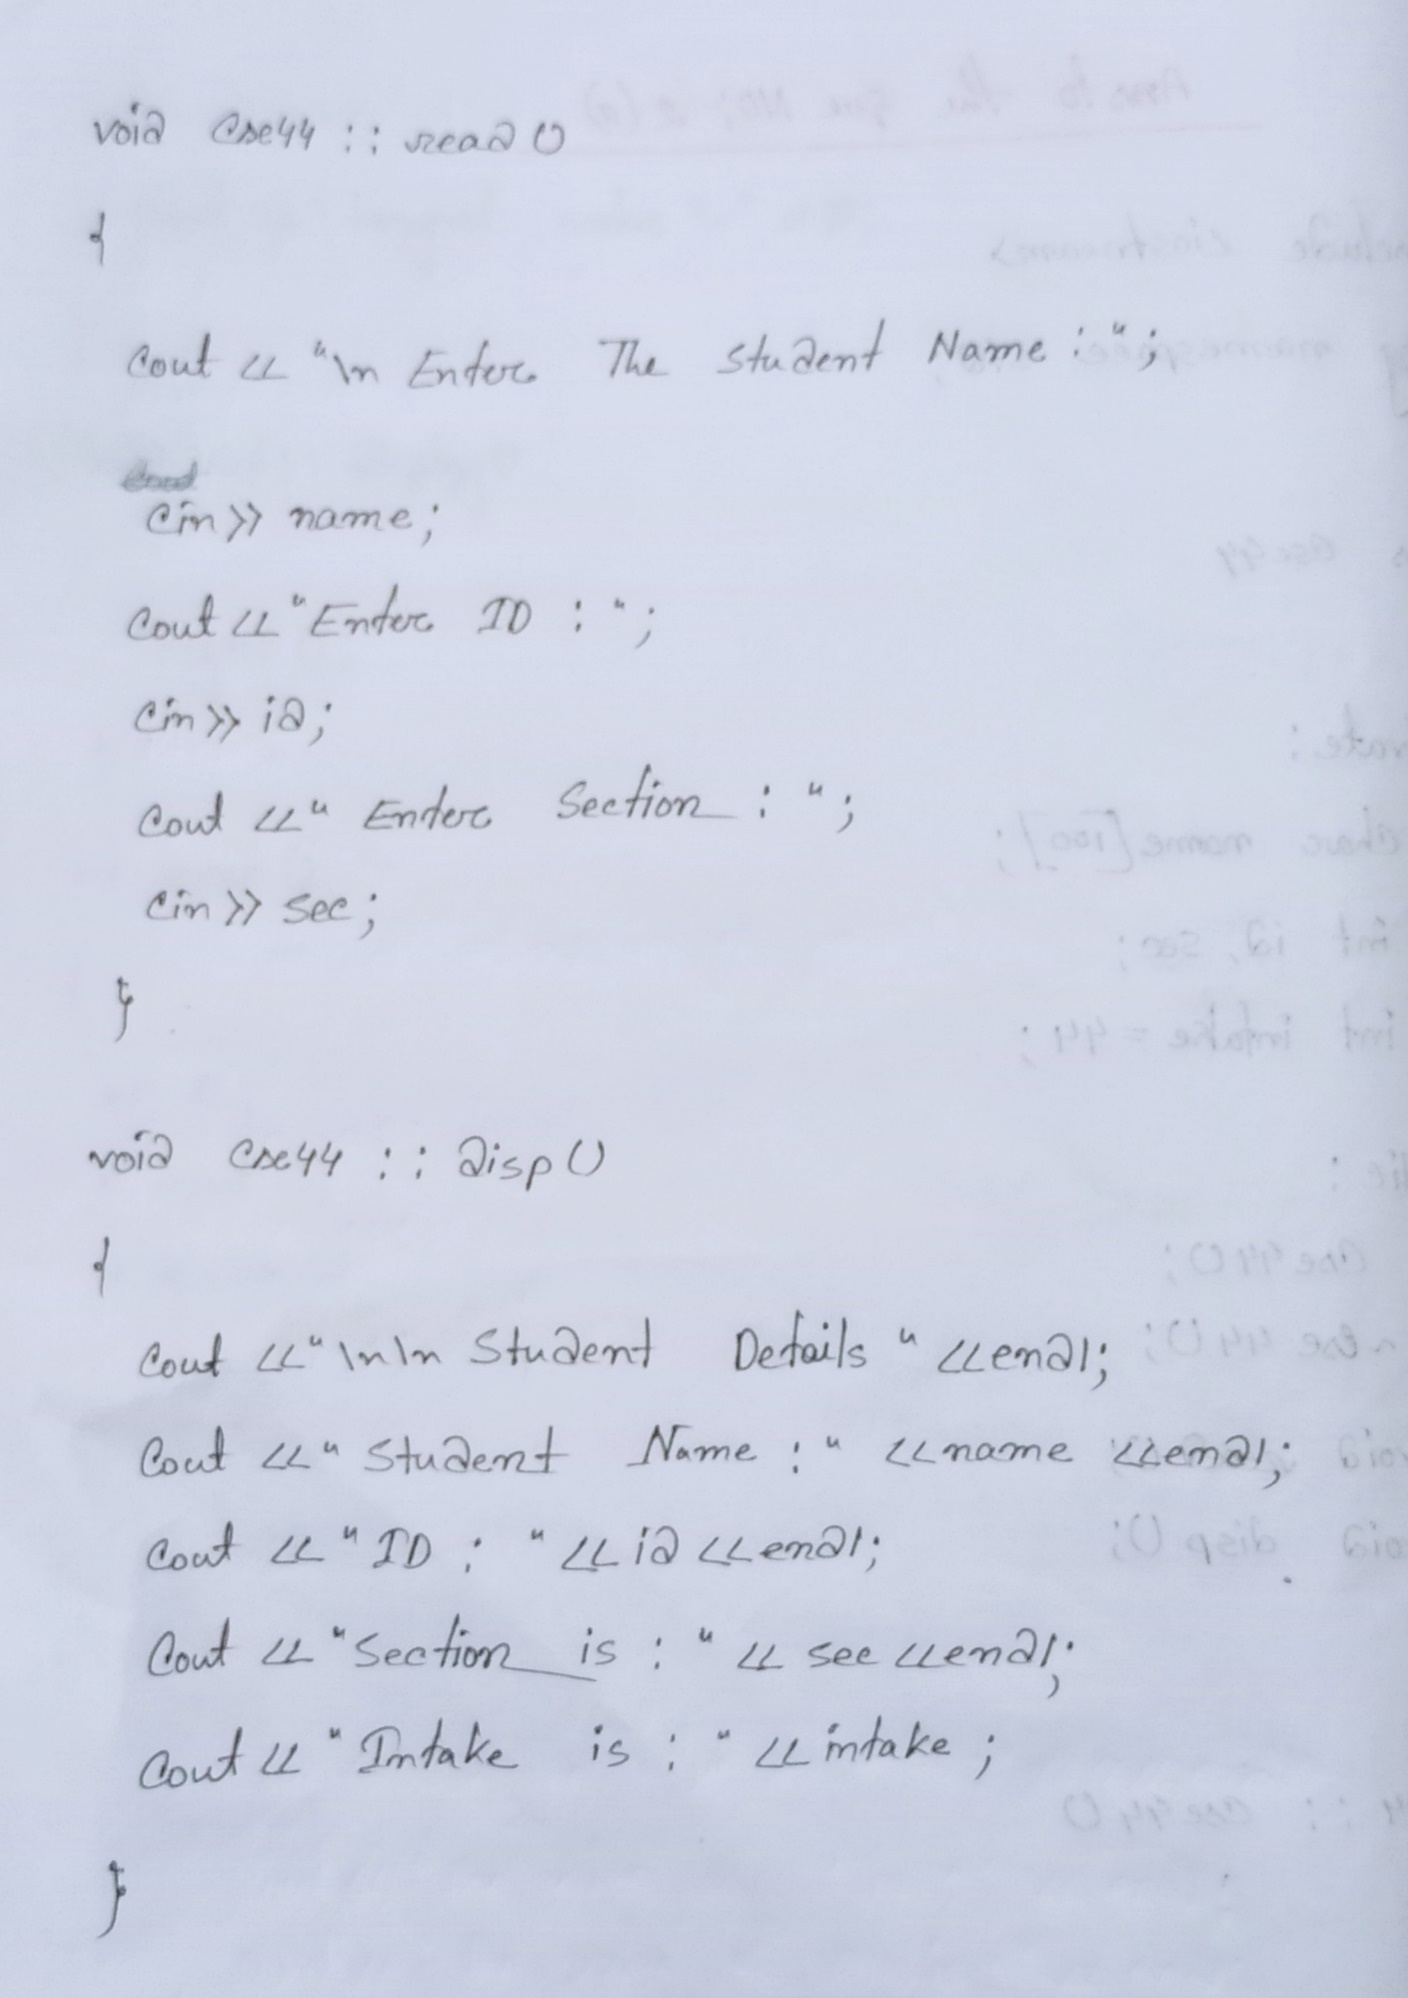 void cse44 :: read ()
{
cout << "\n Enter The Student Name :";
cin >> name;
cout << "Enter ID : ";
cin >> id;
cout << " Enter Section : ";
cin >> sec;
}
void cse44 :: disp ()
{
cout << "\n\n Student Details " << endl;
cout << " Student Name : " << name << endl;
cout << " ID : " << id << endl;
cout << "Section is : " << sec << endl;
cout << "Intake is : " << intake ;
}